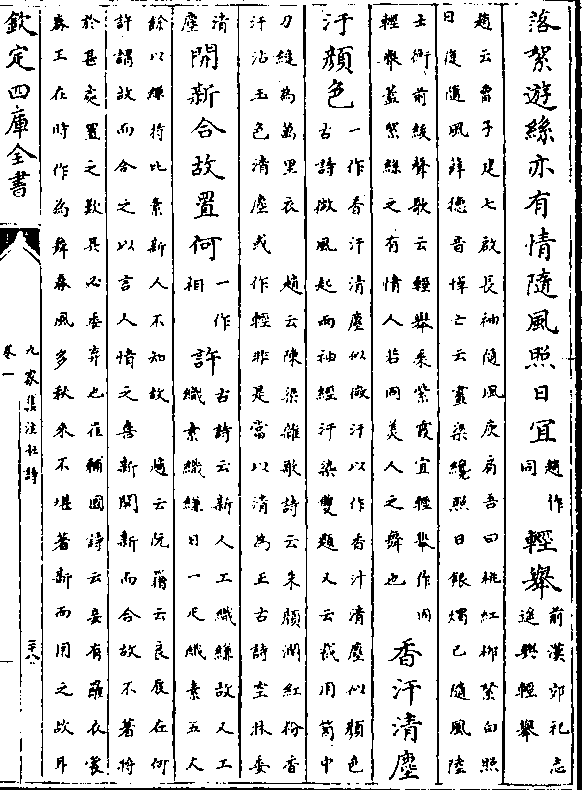 落絮遊絲亦有情隨風照日宜趙作同輕舉前漢郊祀志進興輕舉
趙云曹子建七啟長袖隨風庾肩吾曰桃紅柳絮白照
日復隨風薛德音悼亡云畫梁纔照日銀燭已隨風陸
士衡前緩聲歌云輕舉乘紫霞宜輕舉作同
輕舉蓋絮絲之有情人若同美人之舞也 香汗清塵
汙顔色 一作香汗清塵似微汗以作香汁清塵似顔色
古詩微風起兩袖輕汗染雙題又云裁用笥中
刀縫為萬里衣 趙云陳梁雜歌詩云朱顔潤紅粉香
汗沾玉色清塵或作輕非是當以清為正古詩空牀委
清塵 開新合故置何一作相許 古詩云新人工織縑故人工
織素織縑日一疋織素五丈
餘以縑持比素新人不知故 趙云阮籍云良辰在何
許謂故而合之以言人情之喜新開新而合故不著將
於甚處置之歎其必委弃也崔輔國詩云妾有羅衣裳
秦王在時作為舞春風多秋來不堪著斯而用之故耳
欽定四庫全書
九家集注杜詩
卷一
二十八